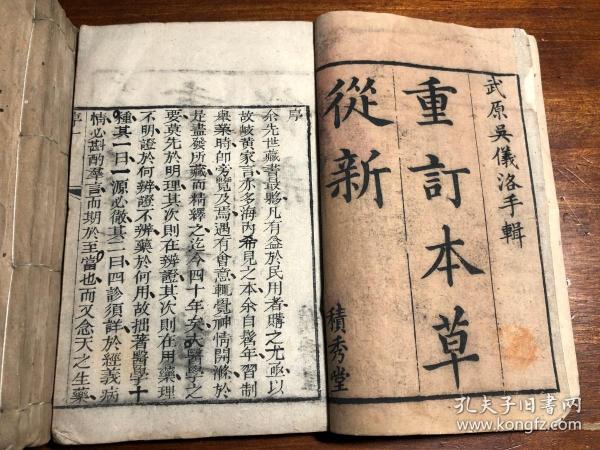 武原吳儀洛手輯
重訂本草
從新
積秀堂
序
余先世藏書最夥凡有益於民用者購之尤亟以
故岐黃家言亦多海內希見之本余自髫年習制
舉業時卽旁覽及焉遇有會意輒覺神情開滌於
是盡發所藏而精繹之迄今四十年矣夫醫學之
要莫先於明理其次則在辨證其次則在用藥理
不明證於何辨證不辨藥於何用故拙著醫學十
種其一曰一源必徹其二曰四診須詳於經義病
情必斟酌羣言而期於至當也而又念天之生藥
序
一
孔夫子旧书网